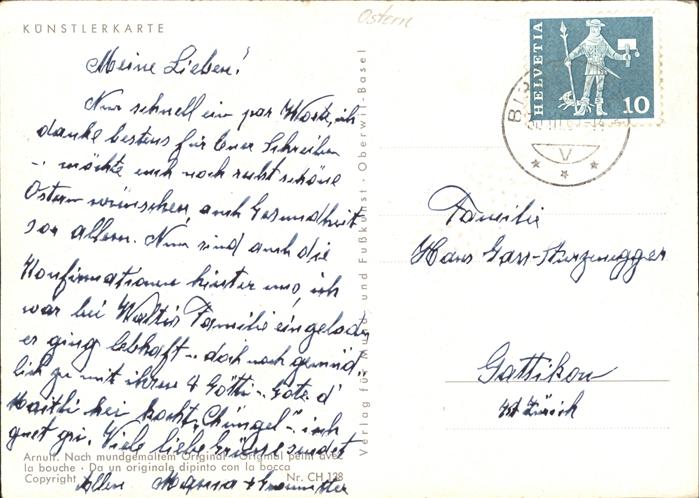 KÜNSTLERKARTE
Ostern
Meine Lieben!
Nur schnell ein par Worte, ich
danke bestens für Euer Schreiben
möchte euch noch recht schöne
Ostern wünschen, auch Gesundheit
vor allem. Nun sind auch die
Konfirmationen hinter uns, ich
war bei Walter Familie eingeladen
er ging lebhaft - doch noch gemüt
lich zu mit ihren 4 Götti - Gote d'
Maitli hei kocht, "Chüngel" - isch
guet gsi. Viele liebe Grüsse sendet
Allen Mama + Grossmutter
Arnulf. Nach mundgemaltem Original · Original peint avec
la bouche · Da un originale dipinto con la bocca
Copyright Nr. CH 128
Verlag für Mund- und Fußkunst · Oberwil-Basel
HELVETIA
10
Familie
Hans
Gattikon
Kt Zürich